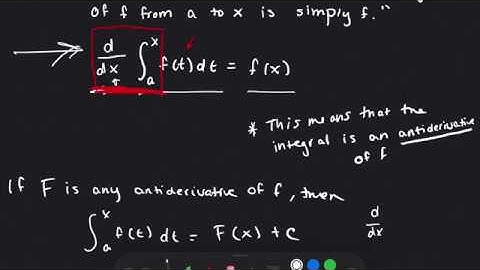 of f from a to x is simply f."
d/dx ∫_a^x f(t) dt = f(x)
* This means that the
integral is an antiderivative
of f
If F is any antiderivative of f, then
∫_a^x f(t) dt = F(x) + C
d/dx